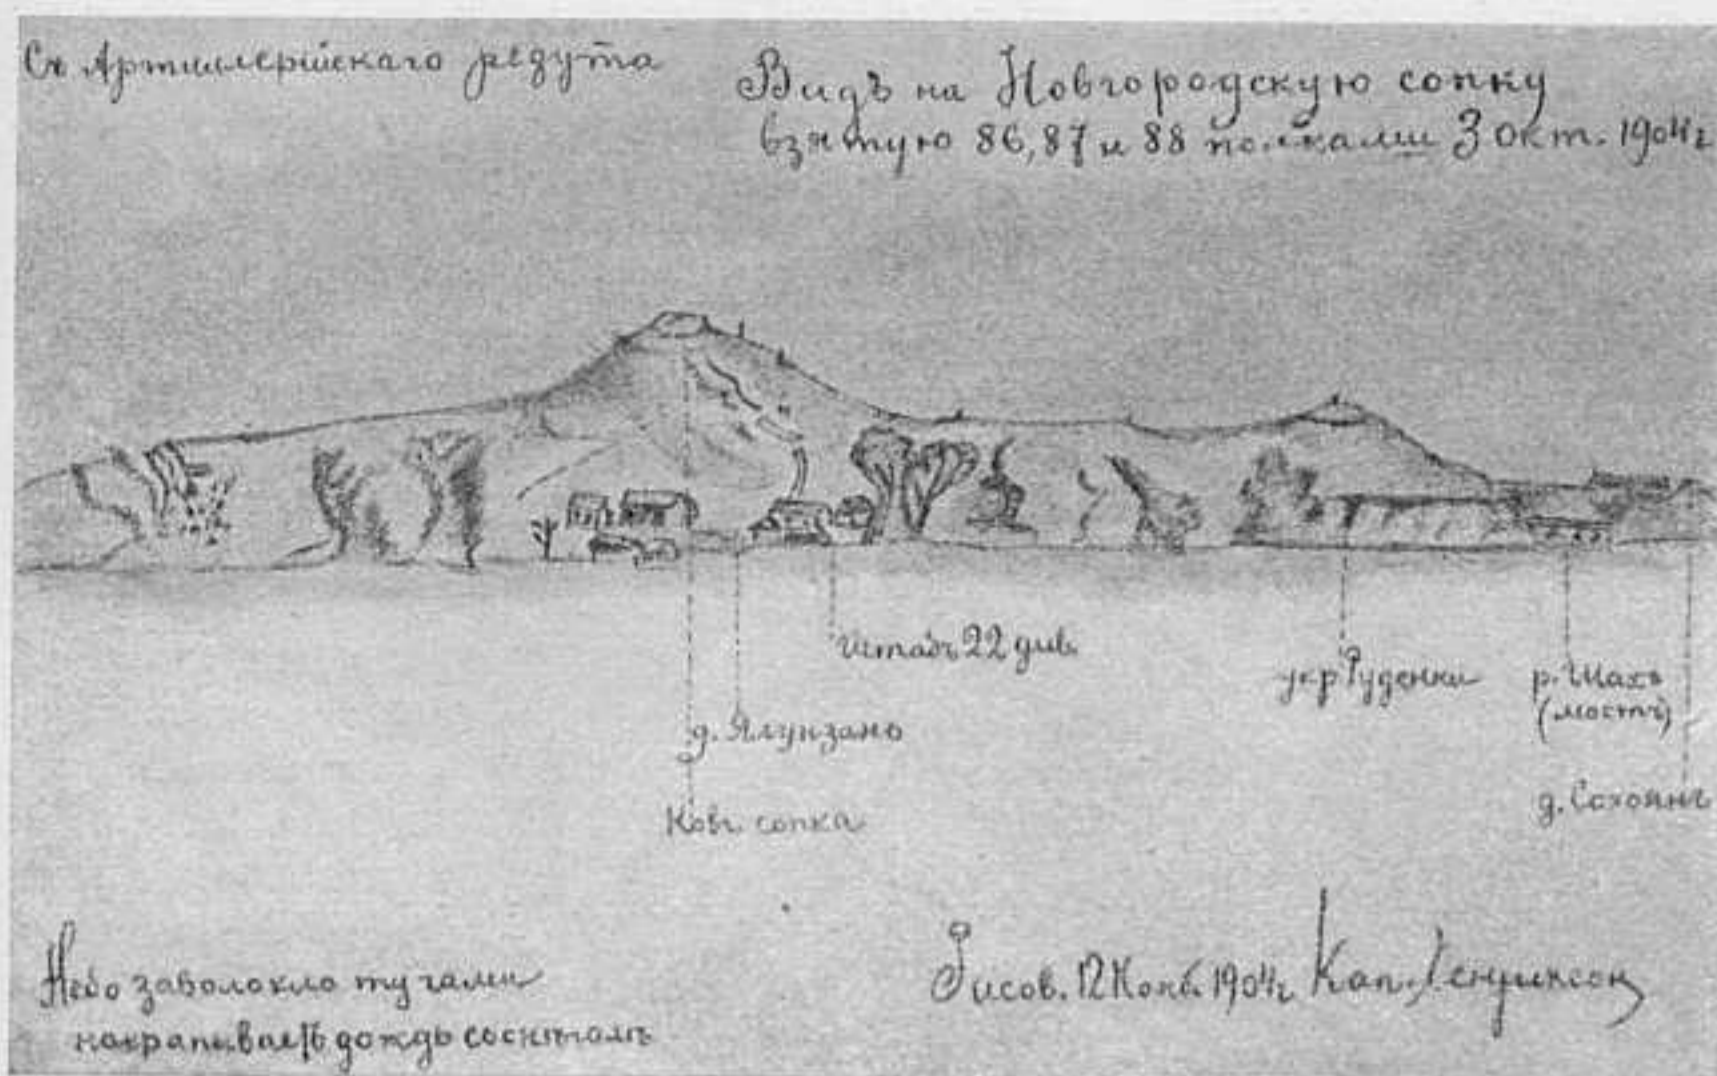 Съ Артиллерійскаго редута
Видъ на Новгородскую сопку
взятую 86, 87 и 88 полками 3 Окт. 1904 г
Штабъ 22 див.
укр. Руденки
р. Шахэ
(мостъ)
д. Ялунзань
д. Сахоянъ
Новг. сопка
Небо заволокло тучами
накрапываетъ дождь со снѣгомъ
Рисов. 12 Нояб. 1904 г Кап. Генриксон